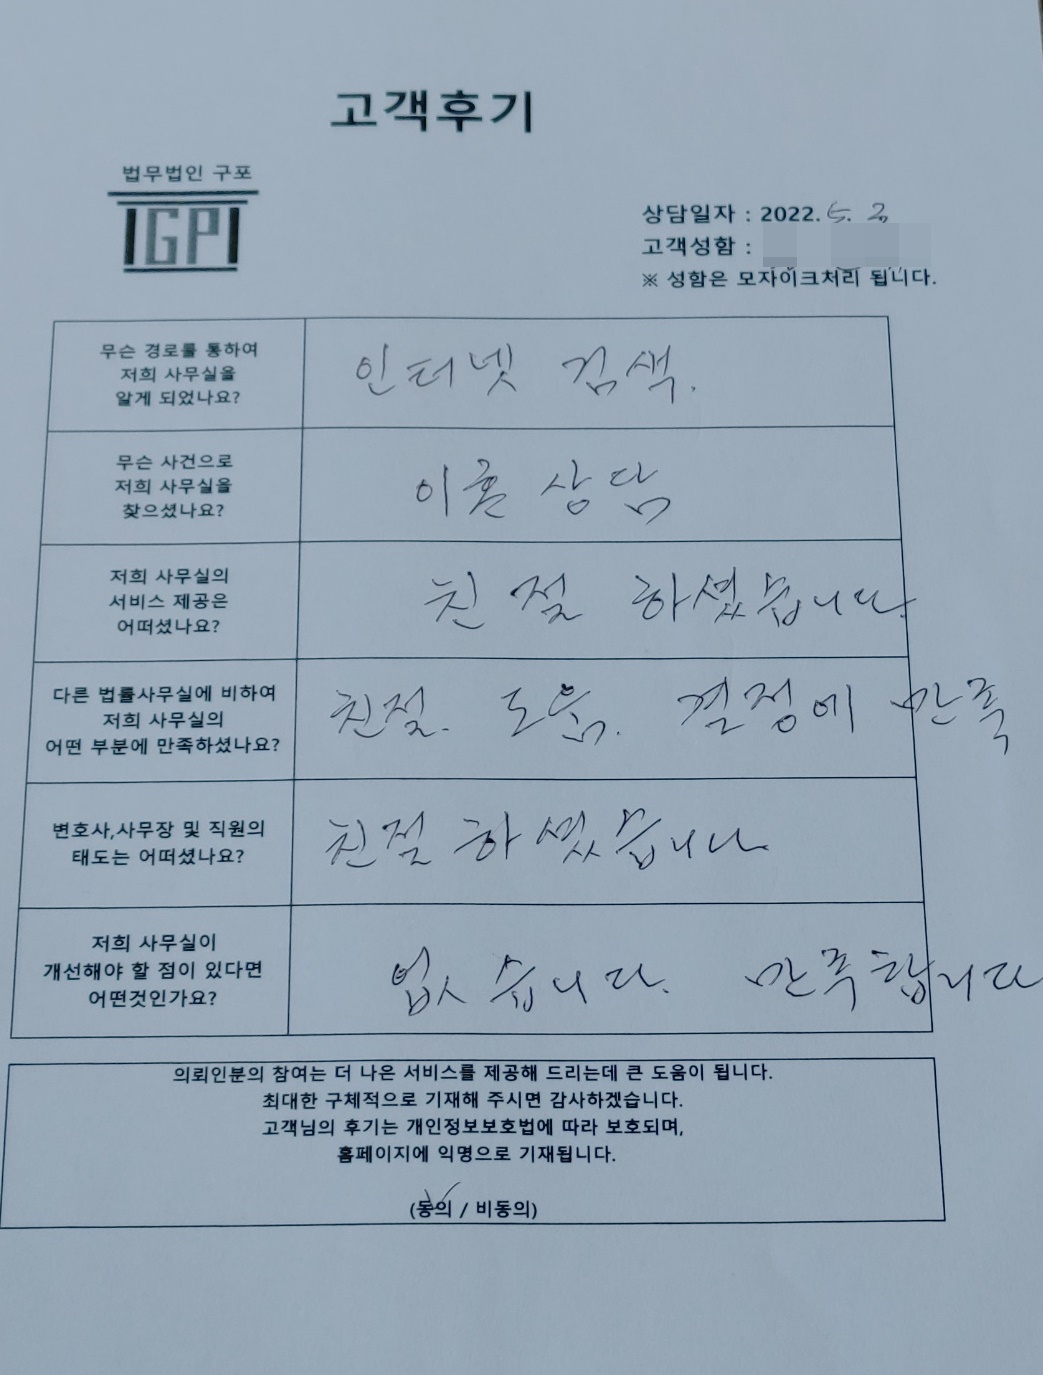 고객후기
법무법인 구포
IGPI
상담일자 : 2022. 5. 2,
고객성함 :
※ 성함은 모자이크처리 됩니다.
무슨 경로를 통하여
저희 사무실을
알게 되었나요?
인터넷 검색.
무슨 사건으로
저희 사무실을
찾으셨나요?
이혼 상담
저희 사무실의
서비스 제공은
어떠셨나요?
친절 하셨습니다
다른 법률사무실에 비하여
저희 사무실의
어떤 부분에 만족하셨나요?
친절. 도움. 결정에 만족
변호사,사무장 및 직원의
태도는 어떠셨나요?
친절 하셨습니다.
저희 사무실이
개선해야 할 점이 있다면
어떤것인가요?
없습니다. 만족합니다
의뢰인분의 참여는 더 나은 서비스를 제공해 드리는데 큰 도움이 됩니다.
최대한 구체적으로 기재해 주시면 감사하겠습니다.
고객님의 후기는 개인정보보호법에 따라 보호되며,
홈페이지에 익명으로 기재됩니다.
(동의 / 비동의)